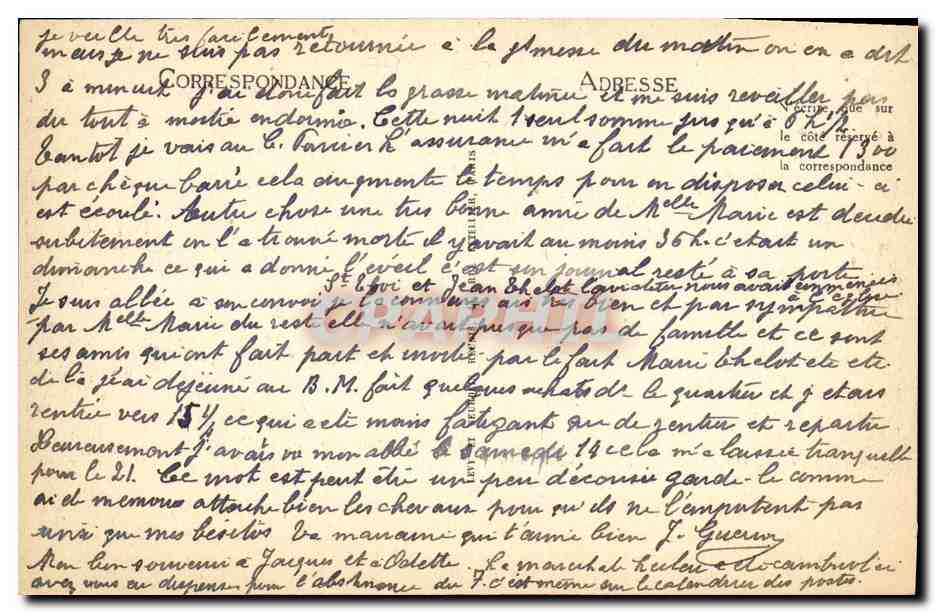 je veille très facilement
mais je ne suis pas retournée à la gd messe du matin on en a dit
CORRESPONDANCE
ADRESSE
3 à minuit j'ai donc fait la grasse matinée et me suis réveillée pas
N'écrire que sur
le côté réservé à
la correspondance
du tout à moitié endormie. Cette nuit 1 seul somme jusqu'à 6 h 1/2
Tantôt je vais au C. l'assurance m'a fait le paiement 1300
par chèque barré cela augmente le temps pour en disposer celui-ci
est écoulé. Autre chose une très bonne amie de Melle Marie est décédée
subitement on l'a trouvé morte il y avait au moins 36 h. c'était un
dimanche ce qui a donné l'éveil c'est son journal resté à sa porte
St et Jean Thelot nous avait
Je suis allée à son convoi je la connaissais très bien et par sympathie
par Melle Marie du reste elle n'avait presque pas de famille et ce sont
ses amis qui ont fait part et invité par le fait Marie Thelot etc etc
de là j'ai déjeuné au B.M. fait quelques achats ds le quartier et j'étais
rentrée vers 15 h ce qui a été moins fatigant que de rentrer et repartir
Heureusement j'avais vu mon abbé le samedi 14 cela m'a laissée tranquille
pour le 21. Ce mot est peut être un peu décousu garde-le comme
attache bien les chevaux pour qu'ils ne l'emportent pas
ainsi que mes bésitos Ta marraine qui t'aime bien J. Guerin
Mon bon souvenir à Jacques et à Odette. Le
avez vous eu dispense pour l'abstinence du 7 c'est même sur le calendrier des postes.
CRAPHIL